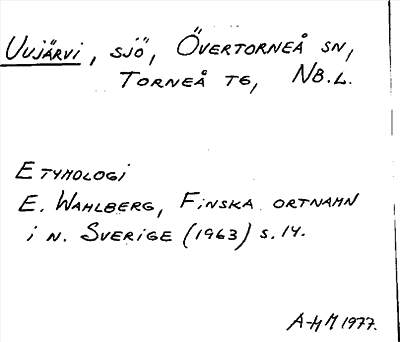 Uujärvi, sjö, Övertorneå sn,
Torneå tg, Nb.l.
Etymologi
E. Wahlberg, Finska ortnamn
i n. Sverige (1963) s. 14.
A-HM 1977.